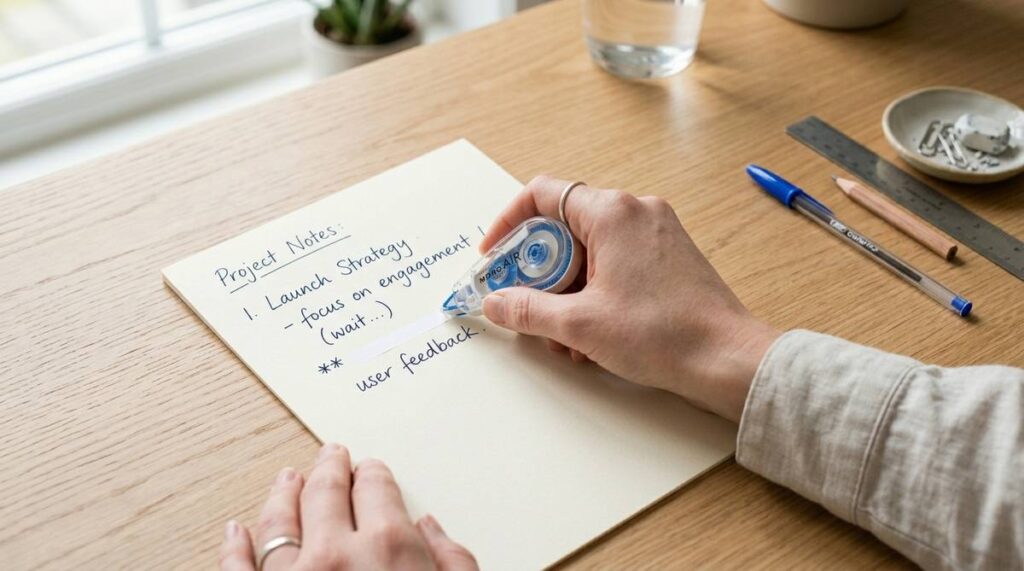 Project Notes:
1. Launch Strategy
- focus on engagement !
(wait...)
**
user feedback.
MONO AIR